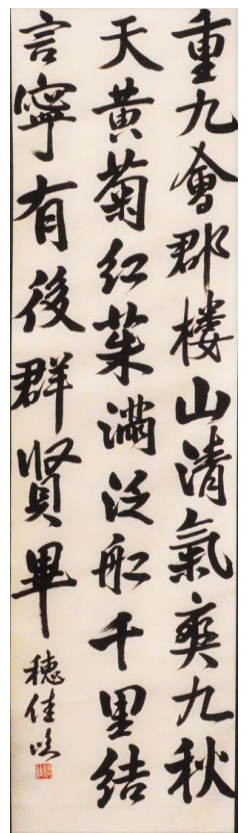 重九會郡樓山清氣爽九秋
天黃菊紅茱滿泛船千里結
言寧有後群賢畢
穗佳